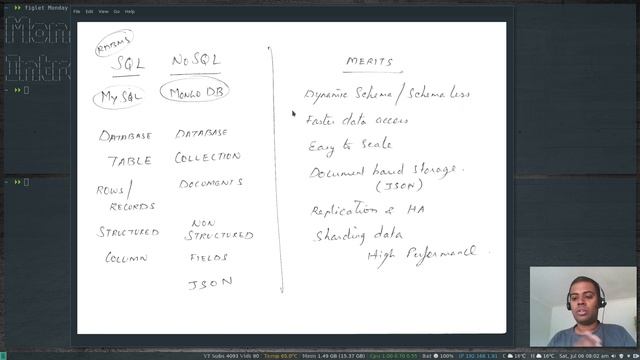 figlet Monday
Mon
Intro
File Edit View Go Help
RDBMS
SQL NoSQL
MySQL MONGO DB
DATABASE DATABASE
TABLE COLLECTION
ROWS/ DOCUMENTS
RECORDS
STRUCTURED NON STRUCTURED
COLUMN FIELDS
JSON
MERITS
Dynamic Schema / Schema less
Faster data access
Easy to Scale
Document based Storage.
(JSON)
Replication & HA
Sharding data
High Performance.
YT Subs 4093 Vids 80 Temp 65.0°C Mem 1.49 GB (15.37 GB) Cpu 1.00 0.70 0.55 Bat 100% IP 192.168.1.81 C 16°C H 16°C Sat, Jul 06 08:02 am